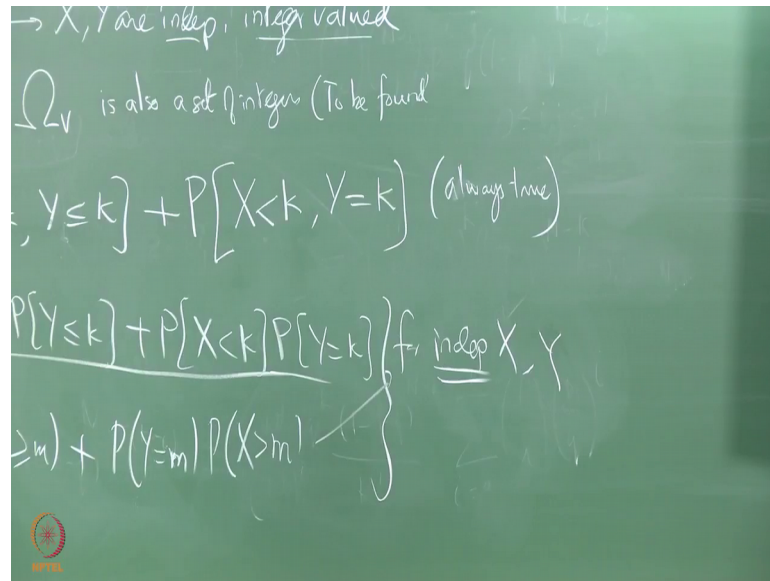 → X, Y are indep, integer valued
Ω_V is also a set of integers (To be found
, Y ≤ k] + P[X < k, Y = k] (always true)
P[Y ≤ k] + P[X < k] P[Y = k] } for indep X, Y
≥ m) + P(Y = m) P(X > m)
NPTEL